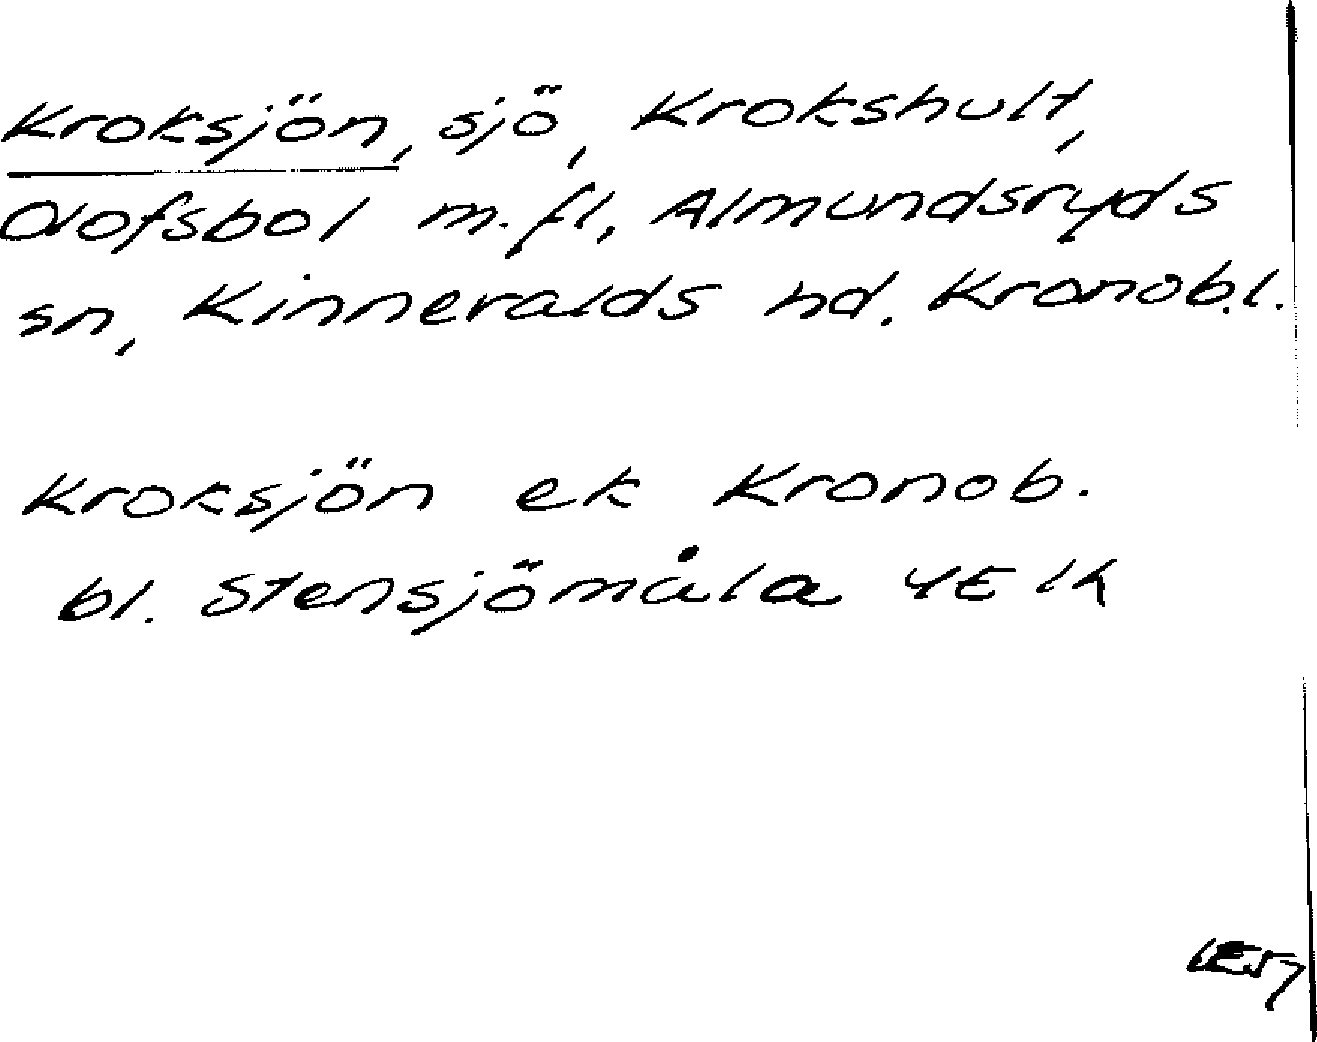 Kroksjön, sjö, Krokshult,
Olofsbol m.fl, Almundsryds
sn, Kinneralds hd. Kronob.l.
Kroksjön ek Kronob.
bl. Stensjömåla 4E 1h